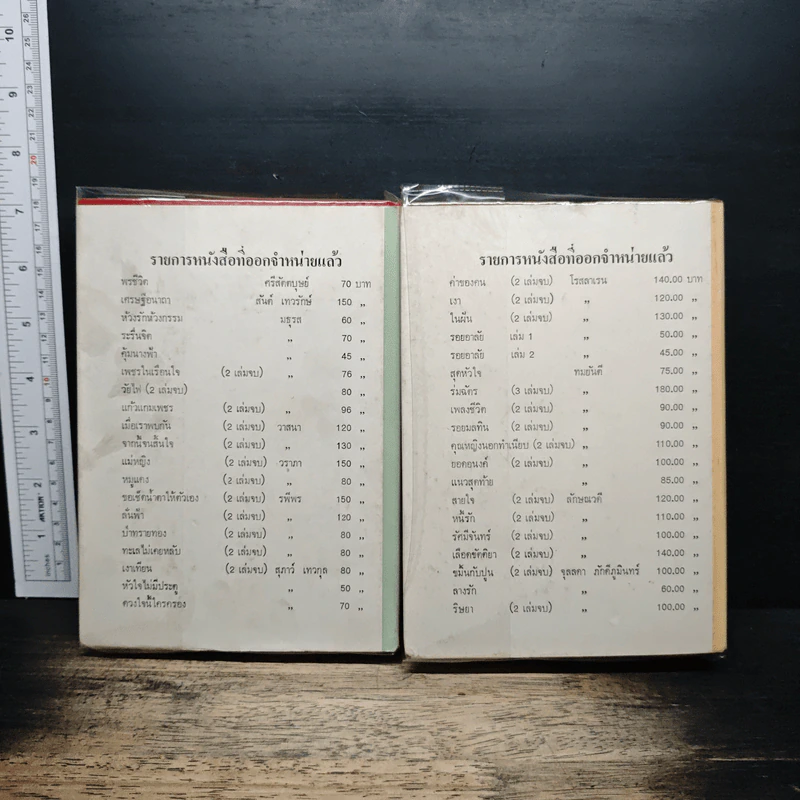 รายการหนังสือที่ออกจำหน่ายแล้ว
พรชีวิต ศรีสัตตบุษย์ 70 บาท
เศรษฐีอนาถา สันต์ เทวรักษ์ 150 „
ห้วงรักห้วงกรรม มธุรส 60 „
ระรื่นจิต „ 70 „
คุ้มนางฟ้า „ 45 „
เพชรในเรือนใจ (2 เล่มจบ) „ 76 „
วัยไฟ (2 เล่มจบ) 80 „
แก้วแกมเพชร (2 เล่มจบ) „ 96 „
เมื่อเราพบกัน (2 เล่มจบ) วาสนา 120 „
จากนี้จนสิ้นใจ (2 เล่มจบ) „ 130 „
แม่หญิง (2 เล่มจบ) วราภา 150 „
หมูแดง (2 เล่มจบ) „ 80 „
ขอเช็ดน้ำตาให้ตัวเอง (2 เล่มจบ) รพีพร 150 „
ลับฟ้า (2 เล่มจบ) „ 120 „
ป่าทรายทอง (2 เล่มจบ) „ 80 „
ทะเลไม่เคยหลับ (2 เล่มจบ) „ 80 „
เงาเทียน (2 เล่มจบ) สุภาว์ เทวกุล 80 „
หัวใจไม่มีประตู „ 50 „
ดวงใจนี้ใครครอง „ 70 „
รายการหนังสือที่ออกจำหน่ายแล้ว
ค่าของคน (2 เล่มจบ) โรสลาเรน 140.00 บาท
เงา (2 เล่มจบ) „ 120.00 „
ในฝัน (2 เล่มจบ) „ 130.00 „
รอยอาลัย เล่ม 1 „ 50.00 „
รอยอาลัย เล่ม 2 „ 45.00 „
สุดหัวใจ ทมยันตี 75.00 „
ร่มฉัตร (3 เล่มจบ) „ 180.00 „
เพลงชีวิต (2 เล่มจบ) „ 90.00 „
รอยมลทิน (2 เล่มจบ) „ 90.00 „
คุณหญิงนอกทำเนียบ (2 เล่มจบ) „ 110.00 „
ยอดอนงค์ (2 เล่มจบ) „ 100.00 „
แนวสุดท้าย „ 85.00 „
สายใจ (2 เล่มจบ) ลักษณวดี 120.00 „
หนี้รัก (2 เล่มจบ) „ 110.00 „
รัศมีจันทร์ (2 เล่มจบ) „ 100.00 „
เลือดขัตติยา (2 เล่มจบ) „ 140.00 „
ขมิ้นกับปูน (2 เล่มจบ) จุลลดา ภักดีภูมินทร์ 100.00 „
ลางรัก „ 60.00 „
ริษยา (2 เล่มจบ) „ 100.00 „